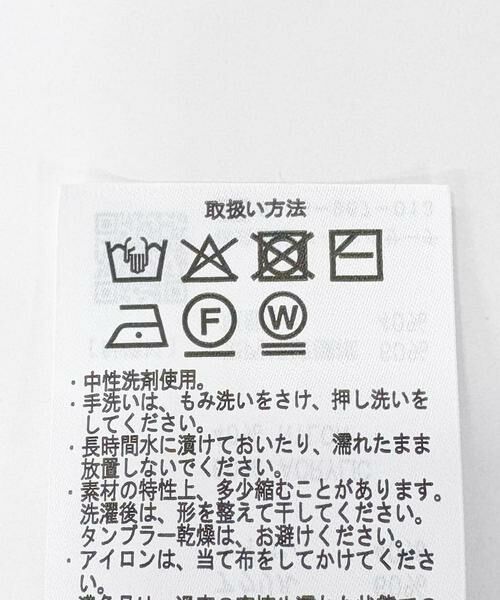 取扱い方法
F
W
・中性洗剤使用。
・手洗いは、もみ洗いをさけ、押し洗いを
してください。
・長時間水に漬けておいたり、濡れたまま
放置しないでください。
・素材の特性上、多少縮むことがあります。
洗濯後は、形を整えて干してください。
タンブラー乾燥は、お避けください。
・アイロンは、当て布をしてかけてくださ
い。